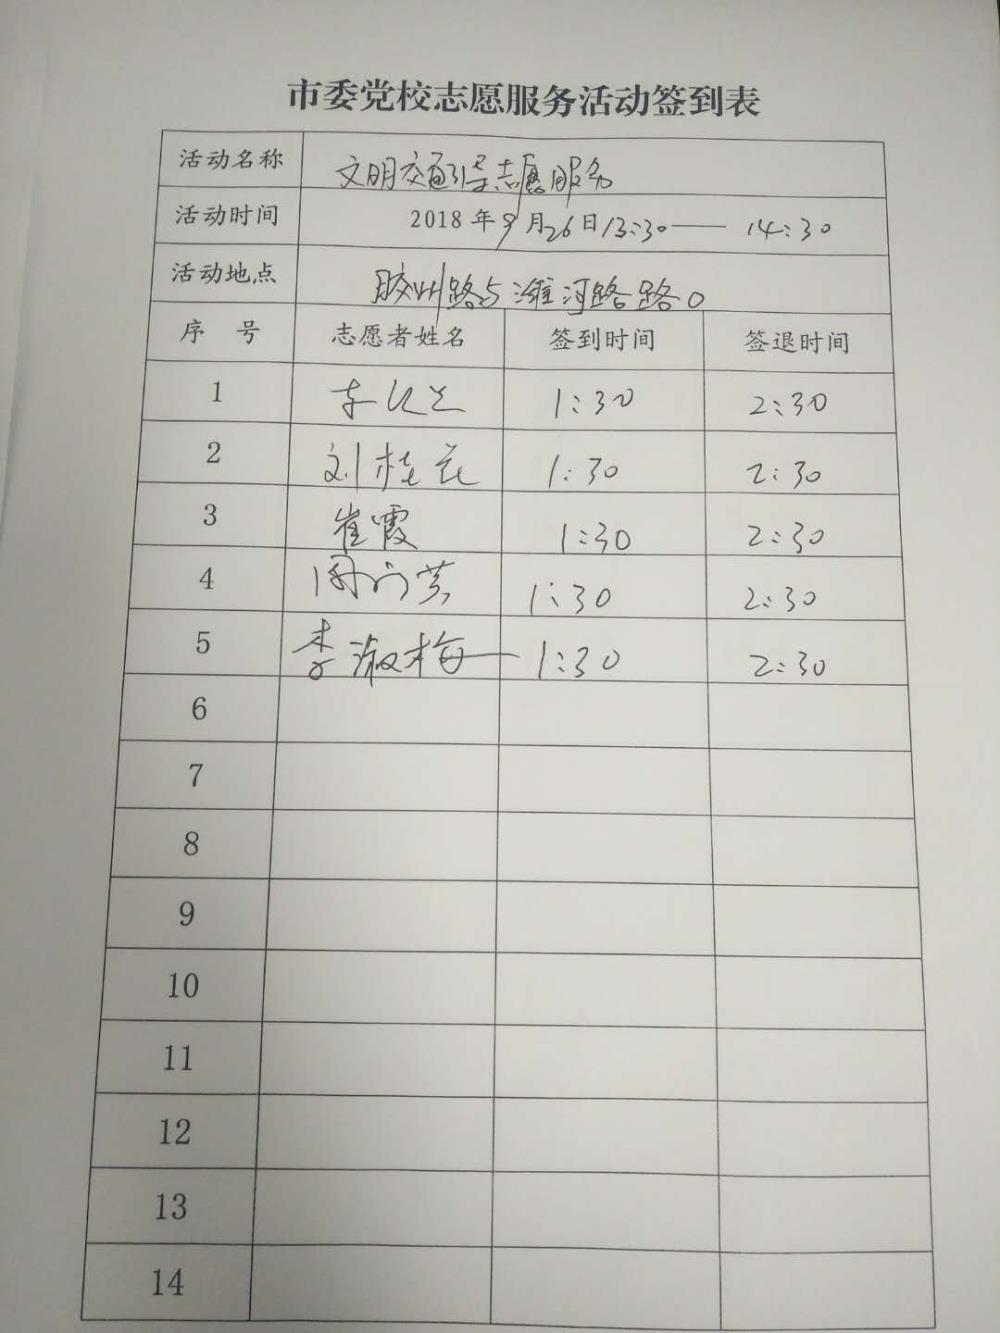 市委党校志愿服务活动签到表
活动名称 文明交通引导志愿服务
活动时间 2018年9月26日13:30—14:30
活动地点 胶州路与潍河路路口
序 号 志愿者姓名 签到时间 签退时间
1 1:30 2:30
2 刘桂花 1:30 2:30
3 崔霞 1:30 2:30
4 1:30 2:30
5 李淑梅 1:30 2:30
6
7
8
9
10
11
12
13
14